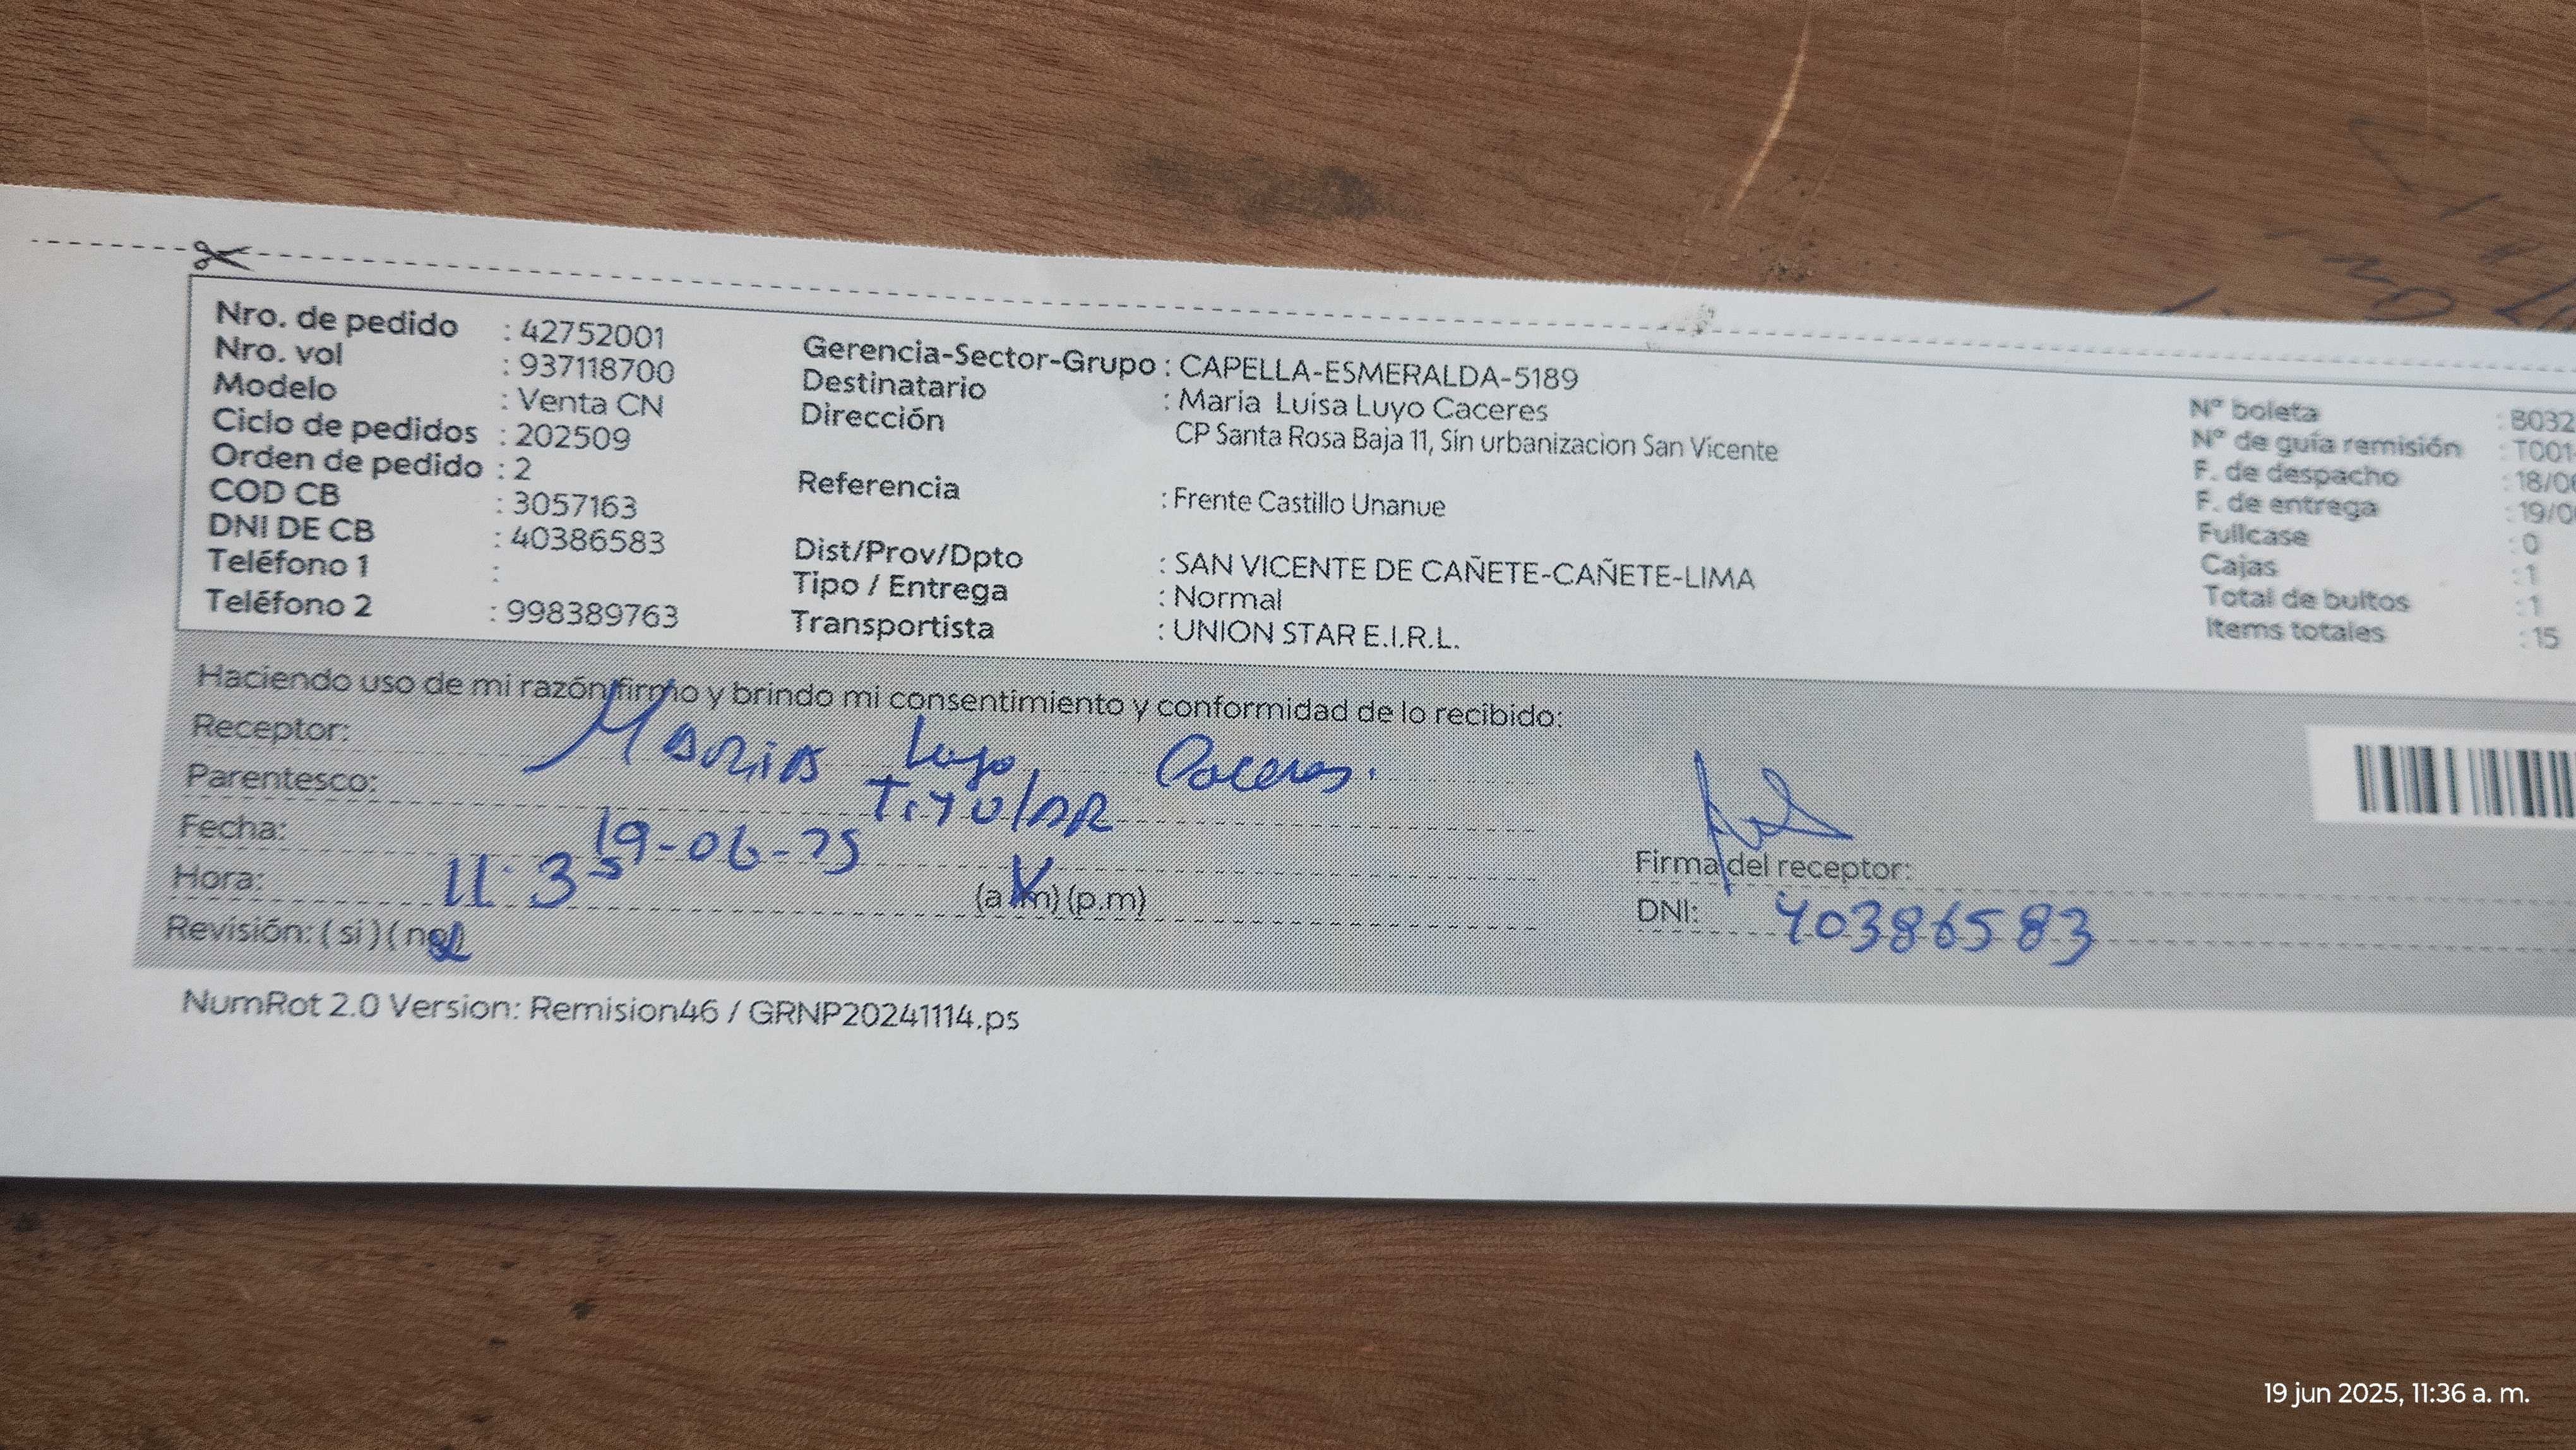 Nro. de pedido : 42752001
Nro. vol : 937118700
Modelo : Venta CN
Ciclo de pedidos : 202509
Orden de pedido : 2
COD CB : 3057163
DNI DE CB : 40386583
Teléfono 1 :
Teléfono 2 : 998389763
Gerencia-Sector-Grupo : CAPELLA-ESMERALDA-5189
Destinatario : Maria Luisa Luyo Caceres
Dirección CP Santa Rosa Baja 11, Sin urbanizacion San Vicente
Referencia : Frente Castillo Unanue
Dist/Prov/Dpto : SAN VICENTE DE CAÑETE-CAÑETE-LIMA
Tipo / Entrega : Normal
Transportista : UNION STAR E.I.R.L.
N° boleta : B032
N° de guía remisión : T001-
F. de despacho : 18/0
F. de entrega : 19/0
Fullcase : 0
Cajas : 1
Total de bultos : 1
Items totales : 15
Haciendo uso de mi razón firmo y brindo mi consentimiento y conformidad de lo recibido:
Receptor: Maria Luyo Caceres.
Parentesco: TiTulAR
Fecha: 19-06-25
Hora: 11:35 (a.m) (p.m)
Revisión: ( si ) ( no )
Firma del receptor:
DNI: 40386583
NumRot 2.0 Version: Remision46 / GRNP20241114.ps
19 jun 2025, 11:36 a. m.